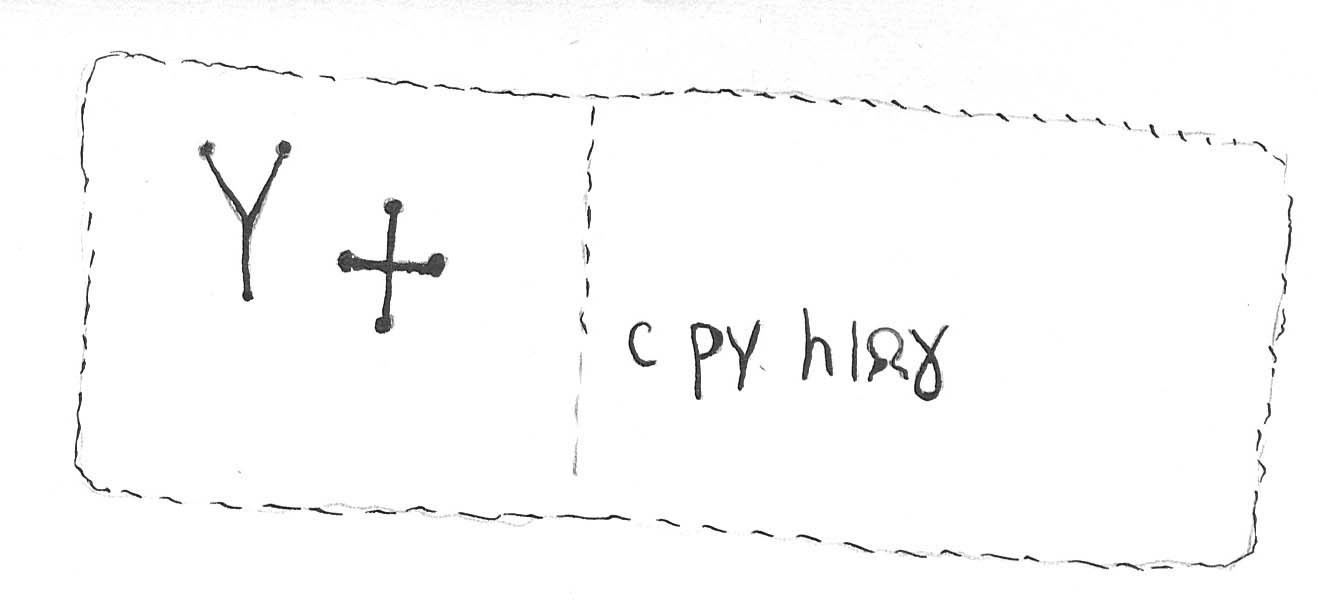 Y +
c pγ hΙΩγ